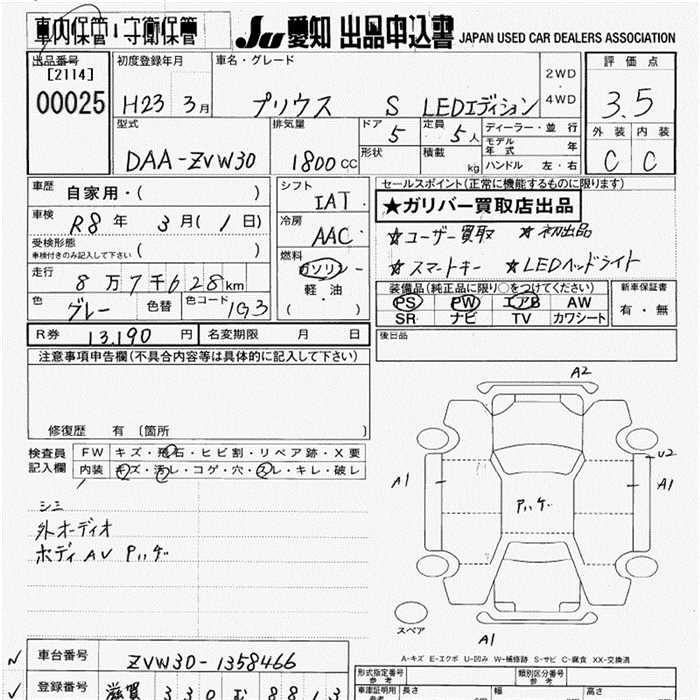 車内保管・守衛保管
JU 愛知 出品申込書 JAPAN USED CAR DEALERS ASSOCIATION
出品番号 [2114] 00025
初度登録年月 H23 3月
車名・グレード プリウス S LEDエディション
2WD ・ 4WD
評価点 3.5
外装 C 内装 C
型式 DAA-ZVW30
排気量 1800 CC
ドア 5
形状
定員 5人
積載 kg
ディーラー・並行
モデル年式 年
ハンドル 左・右
車歴 自家用・( )
車検 R8年 3月(1日)
受検形態 車検付きのみ記入して下さい ( )
走行 8万7千628km
色 グレー 色替 色コード 1G3
シフト IAT
冷房 AAC
燃料 ガソリン・軽・油 ( )
セールスポイント(正常に機能するものに限ります)
★ガリバー買取店出品
☆ユーザー買取 ☆初出品
☆スマートキー ☆LEDヘッドライト
装備品(純正品に限り○をつけてください)
PS PW エアB AW
SR ナビ TV カワシート
新車保証書 有・無
R券 13,190円 名変期限 月 日
後日品
注意事項申告欄(不具合内容等は具体的に記入して下さい)
修復歴 有 〔箇所 〕
検査員記入欄
FW キズ・飛石・ヒビ割・リペア跡・X要
内装 キズ・汚レ・コゲ・穴・スレ・キレ・破レ
シミ
外オーディオ
ボディAV Pハゲ
A2
U2
A1
A1
Pハゲ
スペア
A1
A-キズ E-エクボ U-凹み W-補修跡 S-サビ C-腐食 XX-交換済
車台番号 ZVW30-1358466
登録番号 滋賀 330 む 8813
形式指定番号 参考
類別区分番号
車庫証明用 参考 長さ 幅 高さ